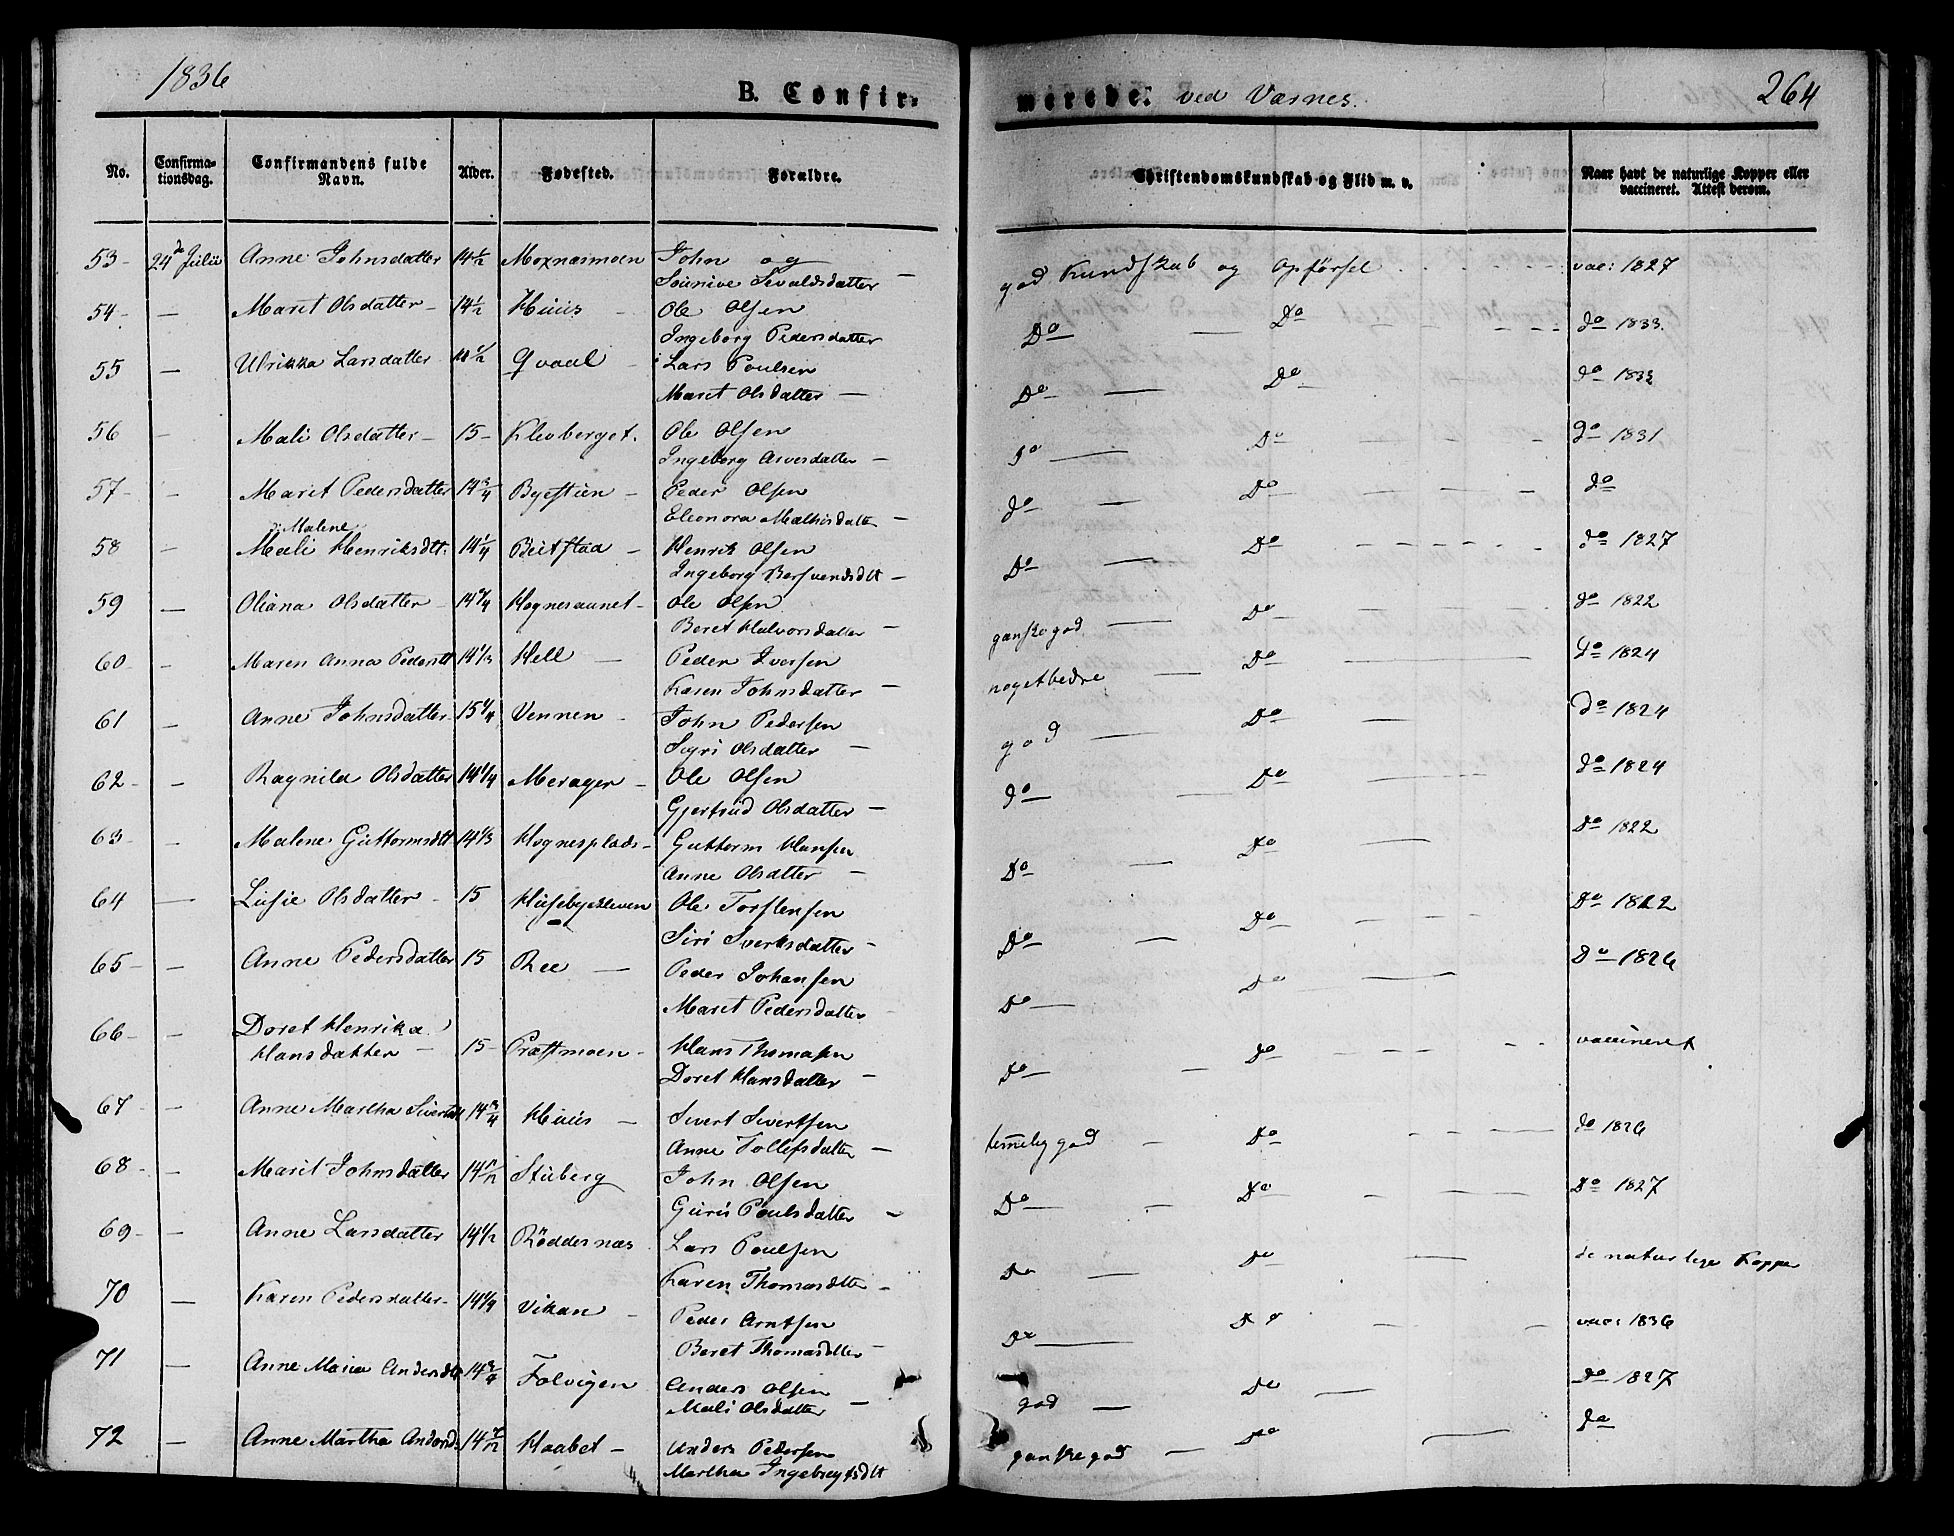 1836
B. Confir-
merede. ved Værnes.
264
No.
Confirmationsdag.
Confirmandens fulde Navn.
Alder.
Fødested.
Forældre.
Christendomskundskab og Flid m. v.
Naar havt de naturlige Kopper eller vaccineret. Attest derom.
53 - 24de Julii Anne Johnsdatter 14 1/2 Moxnæsmoen John og god Kundskab og Opførsel vac: 1827
Sivaldsdatter -
54 - - Marit Olsdatter - 14 1/2 Huus - Ole Olsen Do - Do do 1833.
Ingeborg Pedersdatter
55 - Ulrikka Larsdatter Qvaal - Lars Poulsen Do - Do do 1833
Maret Olsdatter -
56 - Mali Olsdatter - 15 - Klevberget. Ole Olsen do - Do do 1831
Ingeborg -
57 - - Maret Pedersdatter 14 3/4 - Peder Olsen do - Do do
Eleonora -
Malene
58 - Mali Henriksdtt. 14 1/4 Beitstad - Henrik Olsen Do - Do do 1827
Ingeborg Bersvendsdtt -
59 - Oliana Olsdatter - Hognesaunet - Ole Olsen ganske god - Do do 1822
Beret Halvorsdatter -
60 - - Maren Anna 14 1/3 Hell - Peder Iversen noget bedre - Do do 1824
Karen Johnsdatter -
61 - Anne Johnsdatter 15 1/4 Vennen - John Pedersen god - Do do 1824
Olsdatter -
62 - - Ragnild Olsdatter 14 1/4 Meragen - Ole Olsen do - Do do 1824
Gjertrud Olsdatter -
63 - - Malene Guttormsdtt 14 1/3 Hognesplads - Guttorm Hansen Do - Do Do 1822
Anne -
64 - Lusie Olsdatter - 15 Husebyekleven Ole Torstensen Do - Do Do
Siri -
65 - - Anne Pedersdatter 15 Ree - Peder Johansen Do - Do Do 1826
Maret Pedersdatter
66 - - Doret Henrika
Hansdatter - 15 - Præstmoen - Hans Thomasen Do - Do vaccineret
Doret Hansdatter -
67 - - Anne Martha 14 3/4 Huus - Sivert Sivertsen temelig god - Do do 1826
Anne Tollefsdatter -
68 - - Marit Johnsdatter Stuberg John Olsen Do - Do Do 1827
Poulsdatter -
69 - - Anne Larsdatter 14 1/2 Røddesnæs Lars Poulsen Do - Do de naturlige Kopper
Karen -
70 - Karen Pedersdatter - Vikan - Peder Arntsen Do - Do vac: 1836
Beret -
71 - Anne Maria 14 3/4 Folvigen Anders Olsen god - Do Do 1827
Mali Olsdatter -
72 - Anne Martha Haabet - Anders Pedersen ganske god - Do do
Martha